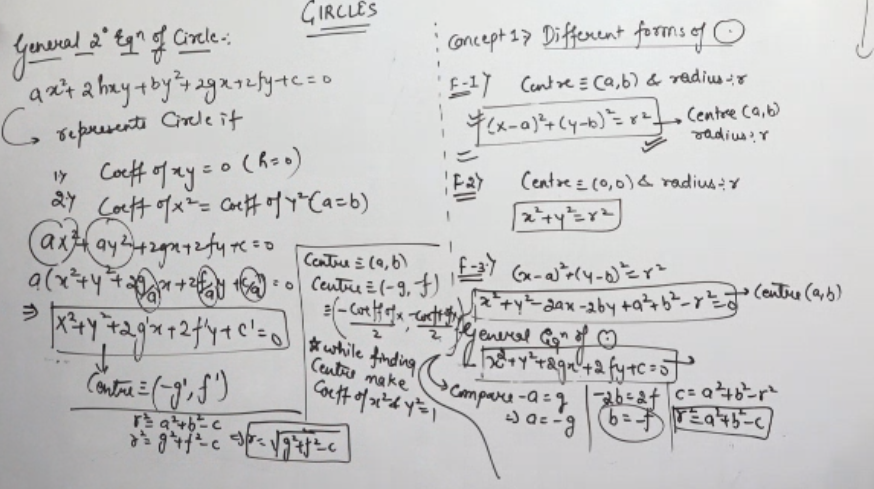 CIRCLES
General 2° Eqn of Circle:
ax²+2hxy+by²+2gx+2fy+c=0
represents Circle if
1) Coeff of xy = 0 (h=0)
2) Coeff of x² = Coeff of y² (a=b)
ax²+ay²+2gx+2fy+c=0
a(x²+y²+2g/a x+2f/a y+c/a)=0
⇒ x²+y²+2g'x+2f'y+c'=0
Centre ≡ (-g', f')
r²=a²+b²-c
r²=g²+f²-c ⇒ r=√g²+f²-c
Centre ≡ (a,b)
Centre ≡ (-g, -f)
≡ (-Coeff of x/2, -Coeff of y/2)
* while finding
Centre make
Coeff of x² & y²=1
Concept 1) Different forms of ⊙
F-1) Centre ≡ (a,b) & radius: r
(x-a)²+(y-b)²=r² → Centre (a,b)
radius: r
F-2) Centre ≡ (0,0) & radius: r
x²+y²=r²
F-3) (x-a)²+(y-b)²=r²
x²+y²-2ax-2by+a²+b²-r²=0 → Centre (a,b)
General Eqn of ⊙
x²+y²+2gx+2fy+c=0 →
Compare -a=g | -2b=2f | c=a²+b²-r²
⇒ a=-g | b=-f | r²=a²+b²-c